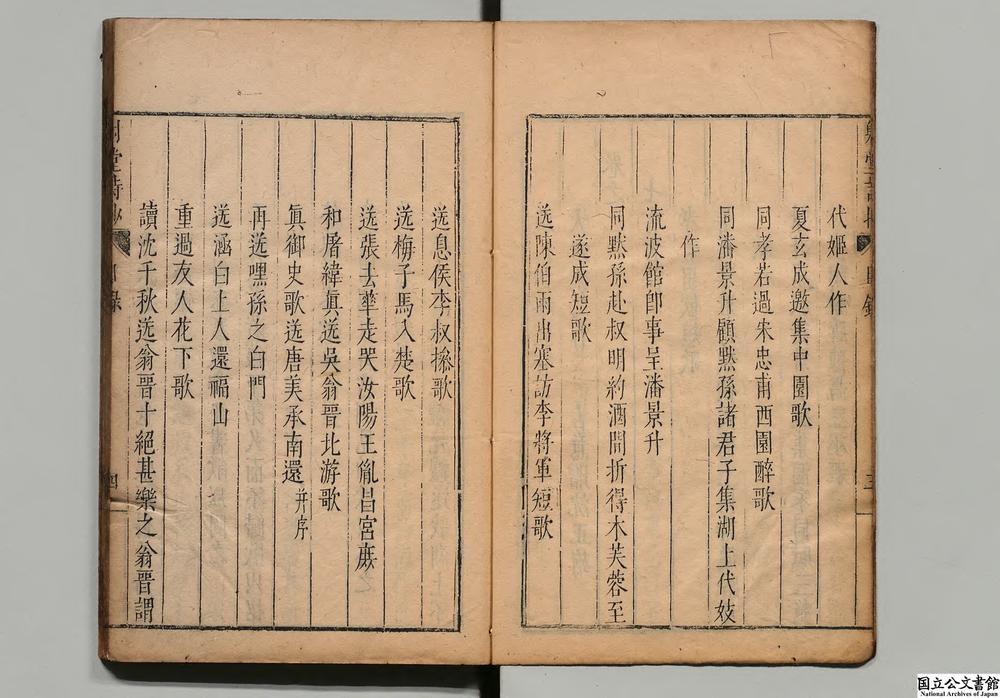 代姬人作
夏玄成邀集中園歌
同孝若過朱忠甫西園醉歌
同潘景升顧黙孫諸君子集湖上代妓
作
流波館即事呈潘景升
同黙孫赴叔明約酒間折得木芙蓉至
遂成短歌
送陳伯雨出塞訪李將軍短歌
目錄
三
送息侯李叔操歌
送梅子馬入楚歌
送張去華走哭汝陽王胤昌宮庶
和屠緯真送吳翁晉北游歌
真御史歌送唐美承南還并序
再送嘿孫之白門
送涵白上人還福山
重過友人花下歌
讀沈千秋送翁晉十絕甚樂之翁晉謂
堂詩
目錄
四
国立公文書館
National Archives of Japan